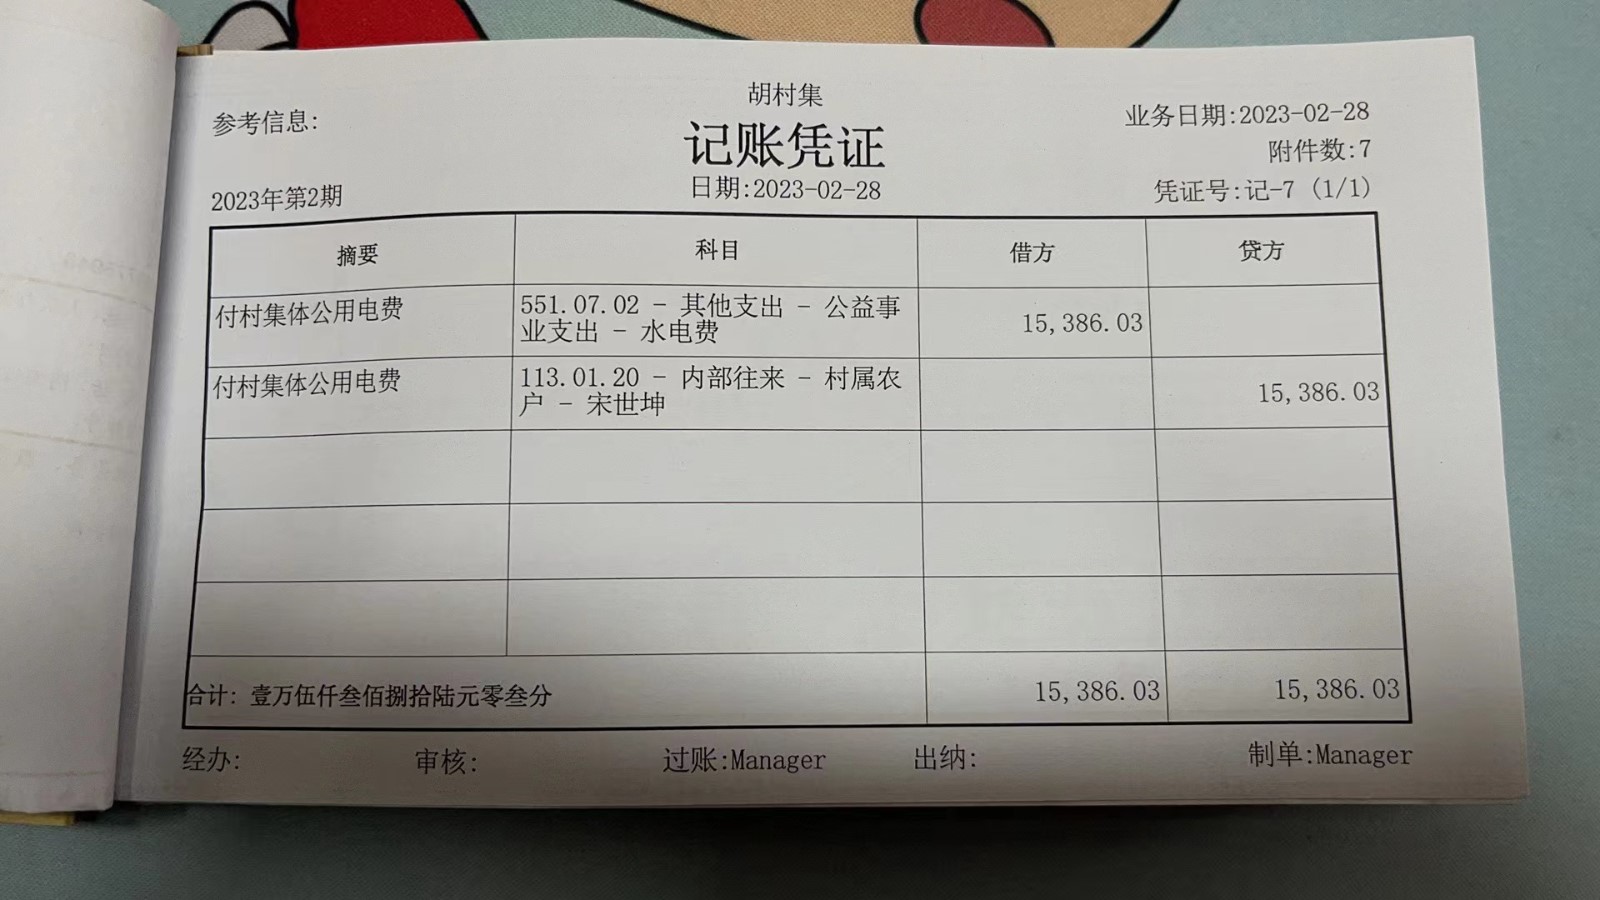 胡村集
参考信息:
记账凭证
业务日期:2023-02-28
附件数:7
2023年第2期
日期:2023-02-28
凭证号:记-7 (1/1)
摘要 科目 借方 贷方
付村集体公用电费 551.07.02 - 其他支出 - 公益事 15,386.03
业支出 - 水电费
付村集体公用电费 113.01.20 - 内部往来 - 村属农 15,386.03
户 - 宋世坤
合计: 壹万伍仟叁佰捌拾陆元零叁分 15,386.03 15,386.03
经办: 审核: 过账:Manager 出纳: 制单:Manager